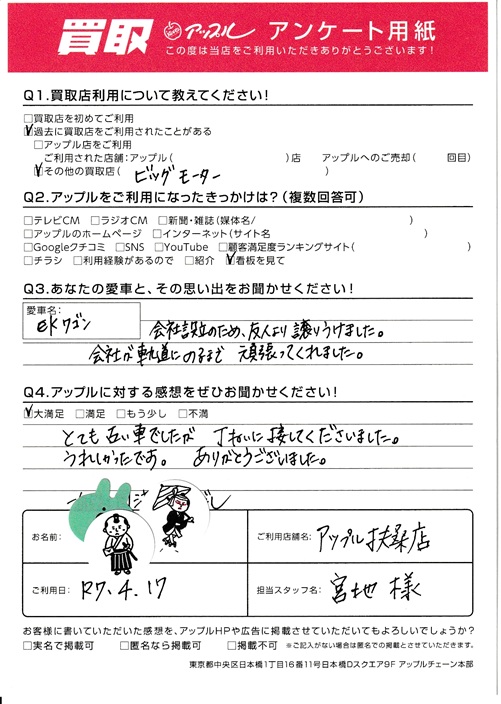 買取 アップル アンケート用紙
この度は当店をご利用いただきありがとうございます!
Q1.買取店利用について教えてください!
□買取店を初めてご利用
☑過去に買取店をご利用されたことがある
□アップル店をご利用
ご利用された店舗:アップル( )店 アップルへのご売却( 回目)
☑その他の買取店( ビッグモーター )
Q2.アップルをご利用になったきっかけは?(複数回答可)
□テレビCM □ラジオCM □新聞・雑誌(媒体名/ )
□アップルのホームページ □インターネット(サイト名 )
□Googleクチコミ □SNS □YouTube □顧客満足度ランキングサイト( )
□チラシ □利用経験があるので □紹介 ☑看板を見て
Q3.あなたの愛車と、その思い出をお聞かせください!
愛車名:
ekワゴン
会社設立のため、友人より譲りうけました。
会社が軌道にのるまで 頑張ってくれました。
Q4.アップルに対する感想をぜひお聞かせください!
☑大満足 □満足 □もう少し □不満
とても古い車でしたが 丁ねいに接してくださいました。
うれしかったです。 ありがとうございました。
お名前:
ご利用店舗名: アップル扶桑店
ご利用日: R7.4.17
担当スタッフ名: 宮地 様
お客様に書いていただいた感想を、アップルHPや広告に掲載させていただいてもよろしいでしょうか?
□実名で掲載可 □匿名なら掲載可 □掲載不可 ※ご記入がない場合は匿名での掲載とさせていただきます。
東京都中央区日本橋1丁目16番11号日本橋Dスクエア9F アップルチェーン本部